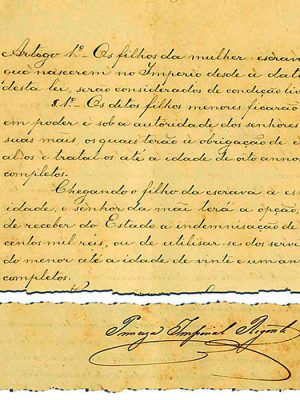 Artogo 1º.- Os filhos da mulher escrava
que nascerem no Imperio desde á data
desta lei, serão considerados de condição liv
§.1º- Os ditos filhos menores ficarão
em poder e sob a autoridade dos senhores
suas mãis, os quaes terão a obrigação de c
al-os e tratal-os até a idade de oito anno
completos.
Chegando o filho da escrava a es
idade, o senhor da mãi terá a opção,
de receber do Estado a indemnisação de
centos mil reis, ou de utilisar-se dos serv
do menor até a idade de vinte e um an
completos.
Princeza Imperial Regente